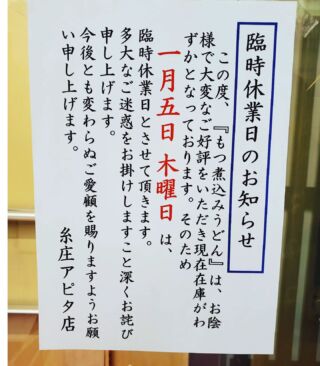 臨時休業日のお知らせ
この度、『もつ煮込みうどん』は、お陰
様で大変なご好評をいただき現在在庫がわ
ずかとなっております。そのため
一月五日 木曜日 は、
臨時休業日とさせて頂きます。
多大なご迷惑をお掛けしますこと深くお詫び
申し上げます。
今後とも変わらぬご愛顧を賜りますようお願
い申し上げます。
糸庄アピタ店